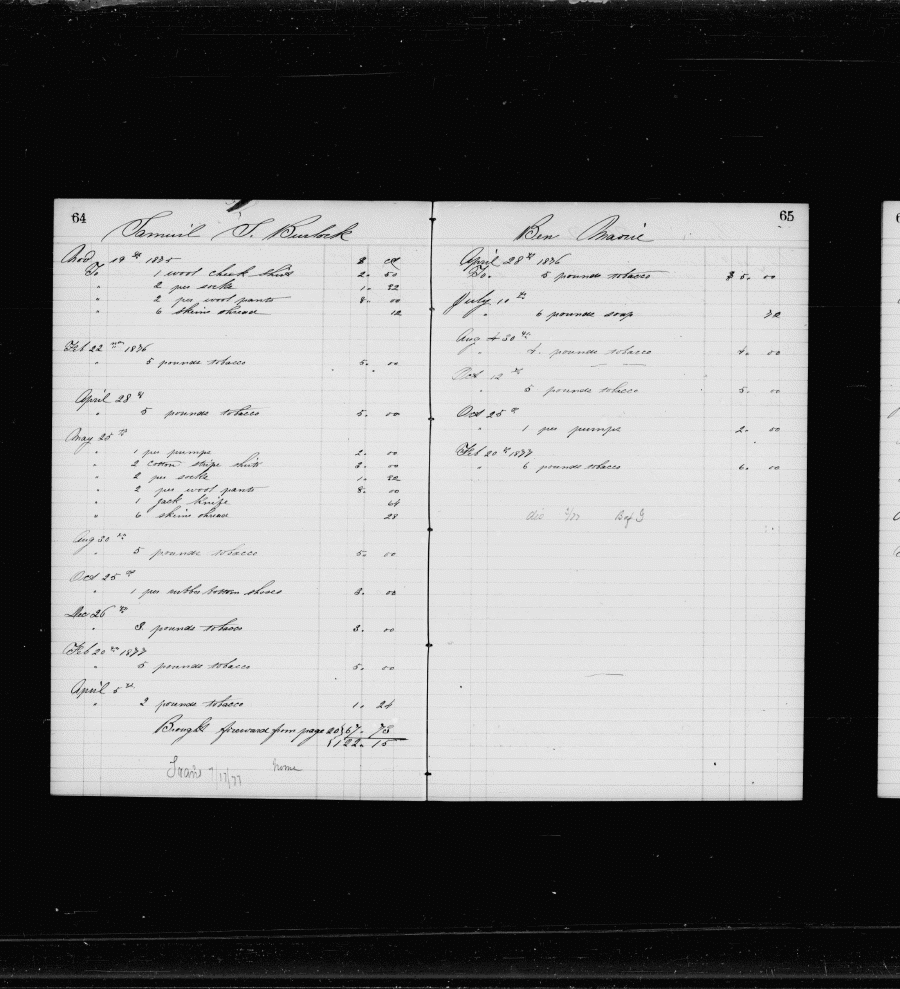 64
Samuil S. Burlock
Nov 19th 1875 $ cts
To 1 wool check shirt 2. 50
" 2 per socks 1. 32
" 2 per wool pants 8. 00
" 6 skeins thread 12
Feb 22 1876
" 5 pounds tobacco 5. 00
April 28th
" 5 pounds tobacco 5. 00
May 25th
" 1 per pumps 2. 00
" 2 cotton stripe shirts 2. 00
" 2 per socks 1. 32
" 2 per wool pants 8. 00
" 1 jack knife 64
" 6 skeins thread 28
Aug 30th
" 5 pounds tobacco 5. 00
Oct 25th
" 1 per rubber bottom shoes 3. 00
Dec 26th
" 3 pounds tobacco 3. 00
Feb 20th 1877
" 5 pounds tobacco 5. 00
April 5th
" 2 pounds tobacco 1. 24
Brought forward from page 20 67. 73
122. 15
7/17/77 home
65
Ben Marie
April 28th 1876
To. 5 pounds tobacco $ 5. 00
July 10th
" 6 pounds soap 72
Aug 30th
" 4. pounds tobacco 4. 00
Oct 12th
" 5 pounds tobacco 5. 00
Oct 25th
" 1 per pumps 2. 00
Feb 20th 1877
" 6 pounds tobacco 6. 00